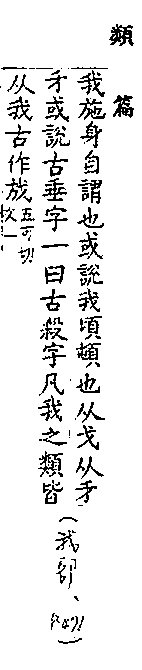 類篇
我施身自謂也或說我頃頓也从戈从𠄒
𠄒或說古垂字一曰古殺字凡我之類皆
从我古作 五可切
文一
(我部、